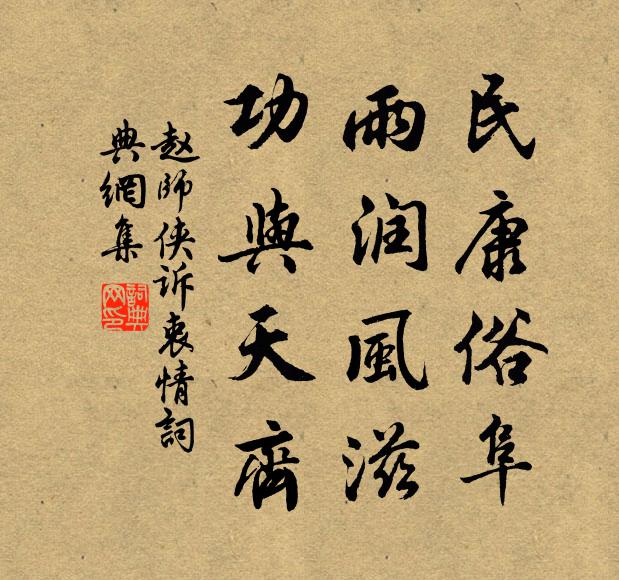 民康俗阜
雨润風滋
功與天齊
赵師侠诉衷情詞
典網集
詞典網印